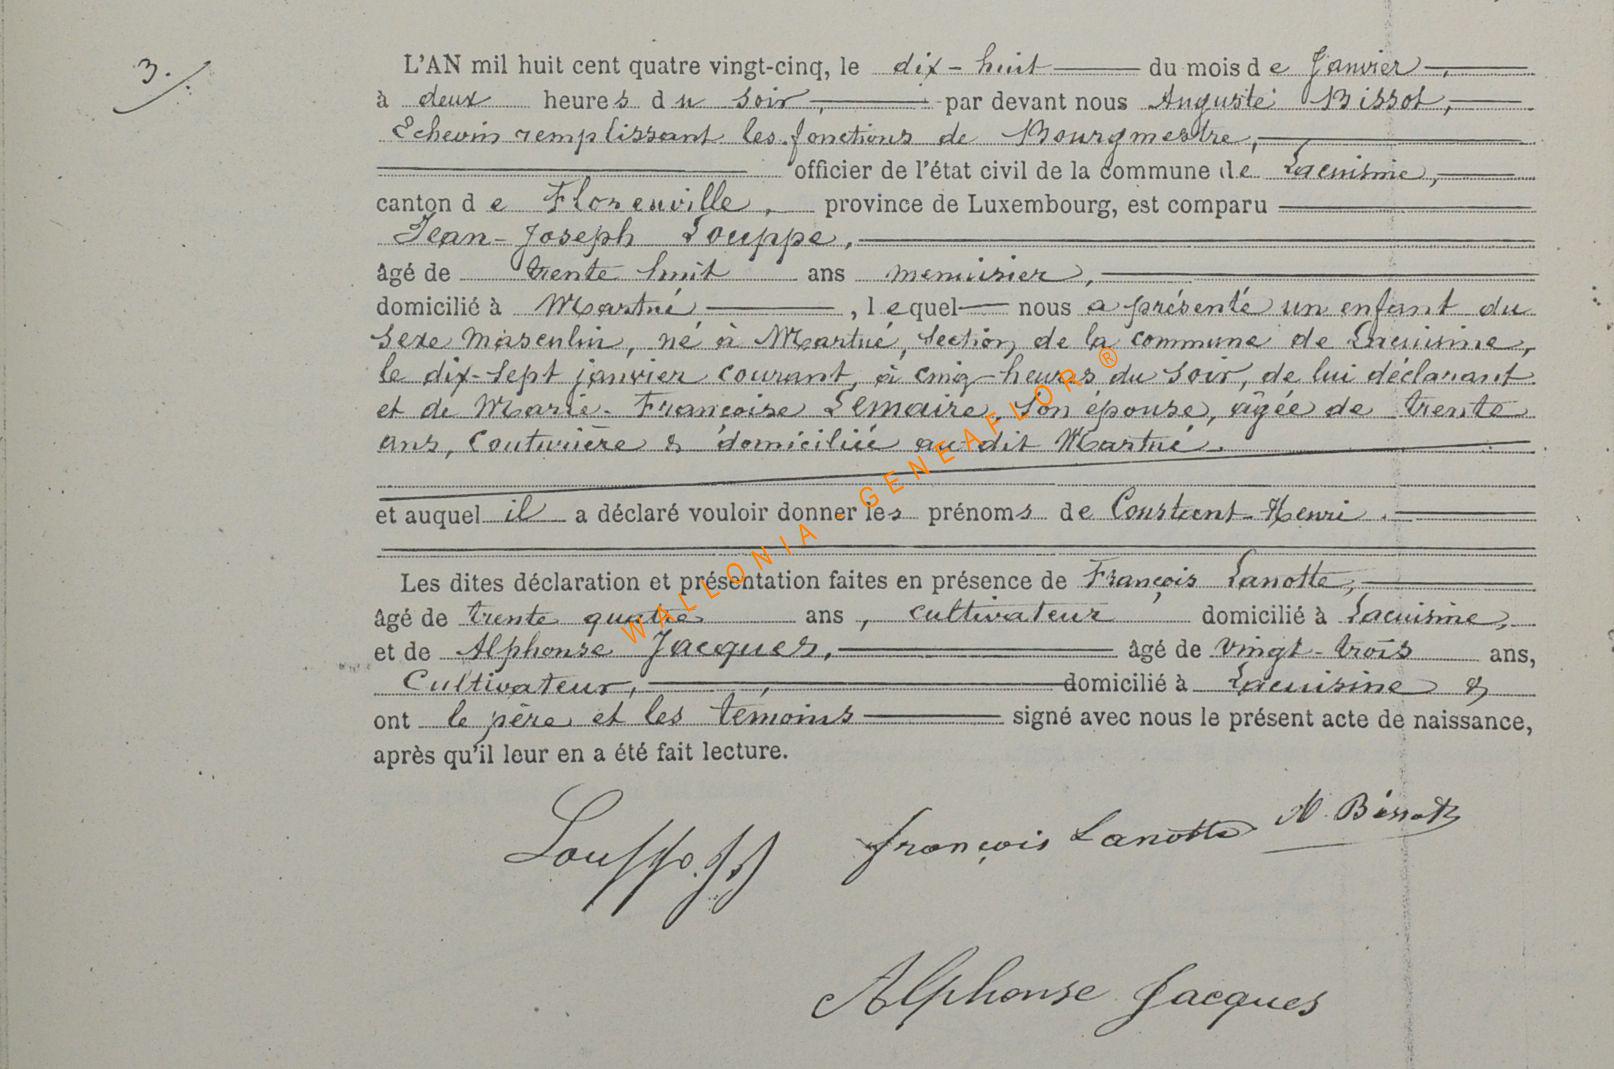 3.
L'AN mil huit cent quatre vingt-cinq, le dix-huit du mois de Janvier,
à deux heures du soir, par devant nous Auguste Bissot,
Echevin remplissant les fonctions de Bourgmestre,
officier de l'état civil de la commune de Lacuisine,
canton de Florenville, province de Luxembourg, est comparu
Jean-Joseph Louppe,
âgé de trente huit ans menuisier,
domicilié à Martué, lequel nous a présenté un enfant du
sexe masculin, né à Martué, section de la commune de Lacuisine,
le dix-sept janvier courant, à cinq heures du soir, de lui déclarant
et de Marie-Françoise Lemaire, son épouse, âgée de trente
ans, Couturière & domiciliée au dit Martué.
et auquel il a déclaré vouloir donner les prénoms de Constant-Henri.
Les dites déclaration et présentation faites en présence de François Lanotte,
âgé de trente quatre ans, cultivateur domicilié à Lacuisine,
et de Alphonse Jacques, âgé de vingt-trois ans,
Cultivateur, domicilié à Lacuisine &
ont le père et les témoins signé avec nous le présent acte de naissance,
après qu'il leur en a été fait lecture.
Louppe JJ François Lanotte A. Bissot
Alphonse Jacques
WALLONIA - GENEAFLOR ®